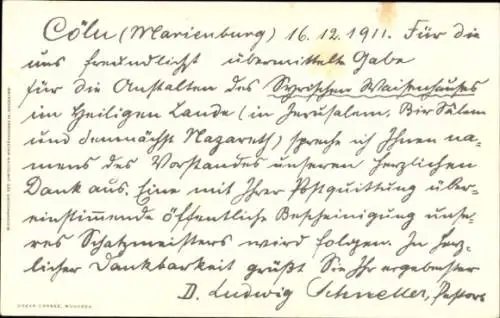 Cöln (Marienburg) 16.12.1911. Für die
uns freundlichst übermittelte Gabe
für die Anstalten des Syrischen Waisenhauses
im Heiligen Lande (in Jerusalem, Bir Sâlem
und demnächst Nazareth) spreche ich Ihnen na-
mens des Vorstandes unseren herzlichen
Dank aus. Eine mit Ihrer Postquittung über-
einstimmende öffentliche Bescheinigung unse-
res Schatzmeisters wird folgen. In herz-
licher Dankbarkeit grüßt Sie Ihr ergebenster
D. Ludwig Schneller, Pastor.
OSCAR CONSÉE, MÜNCHEN